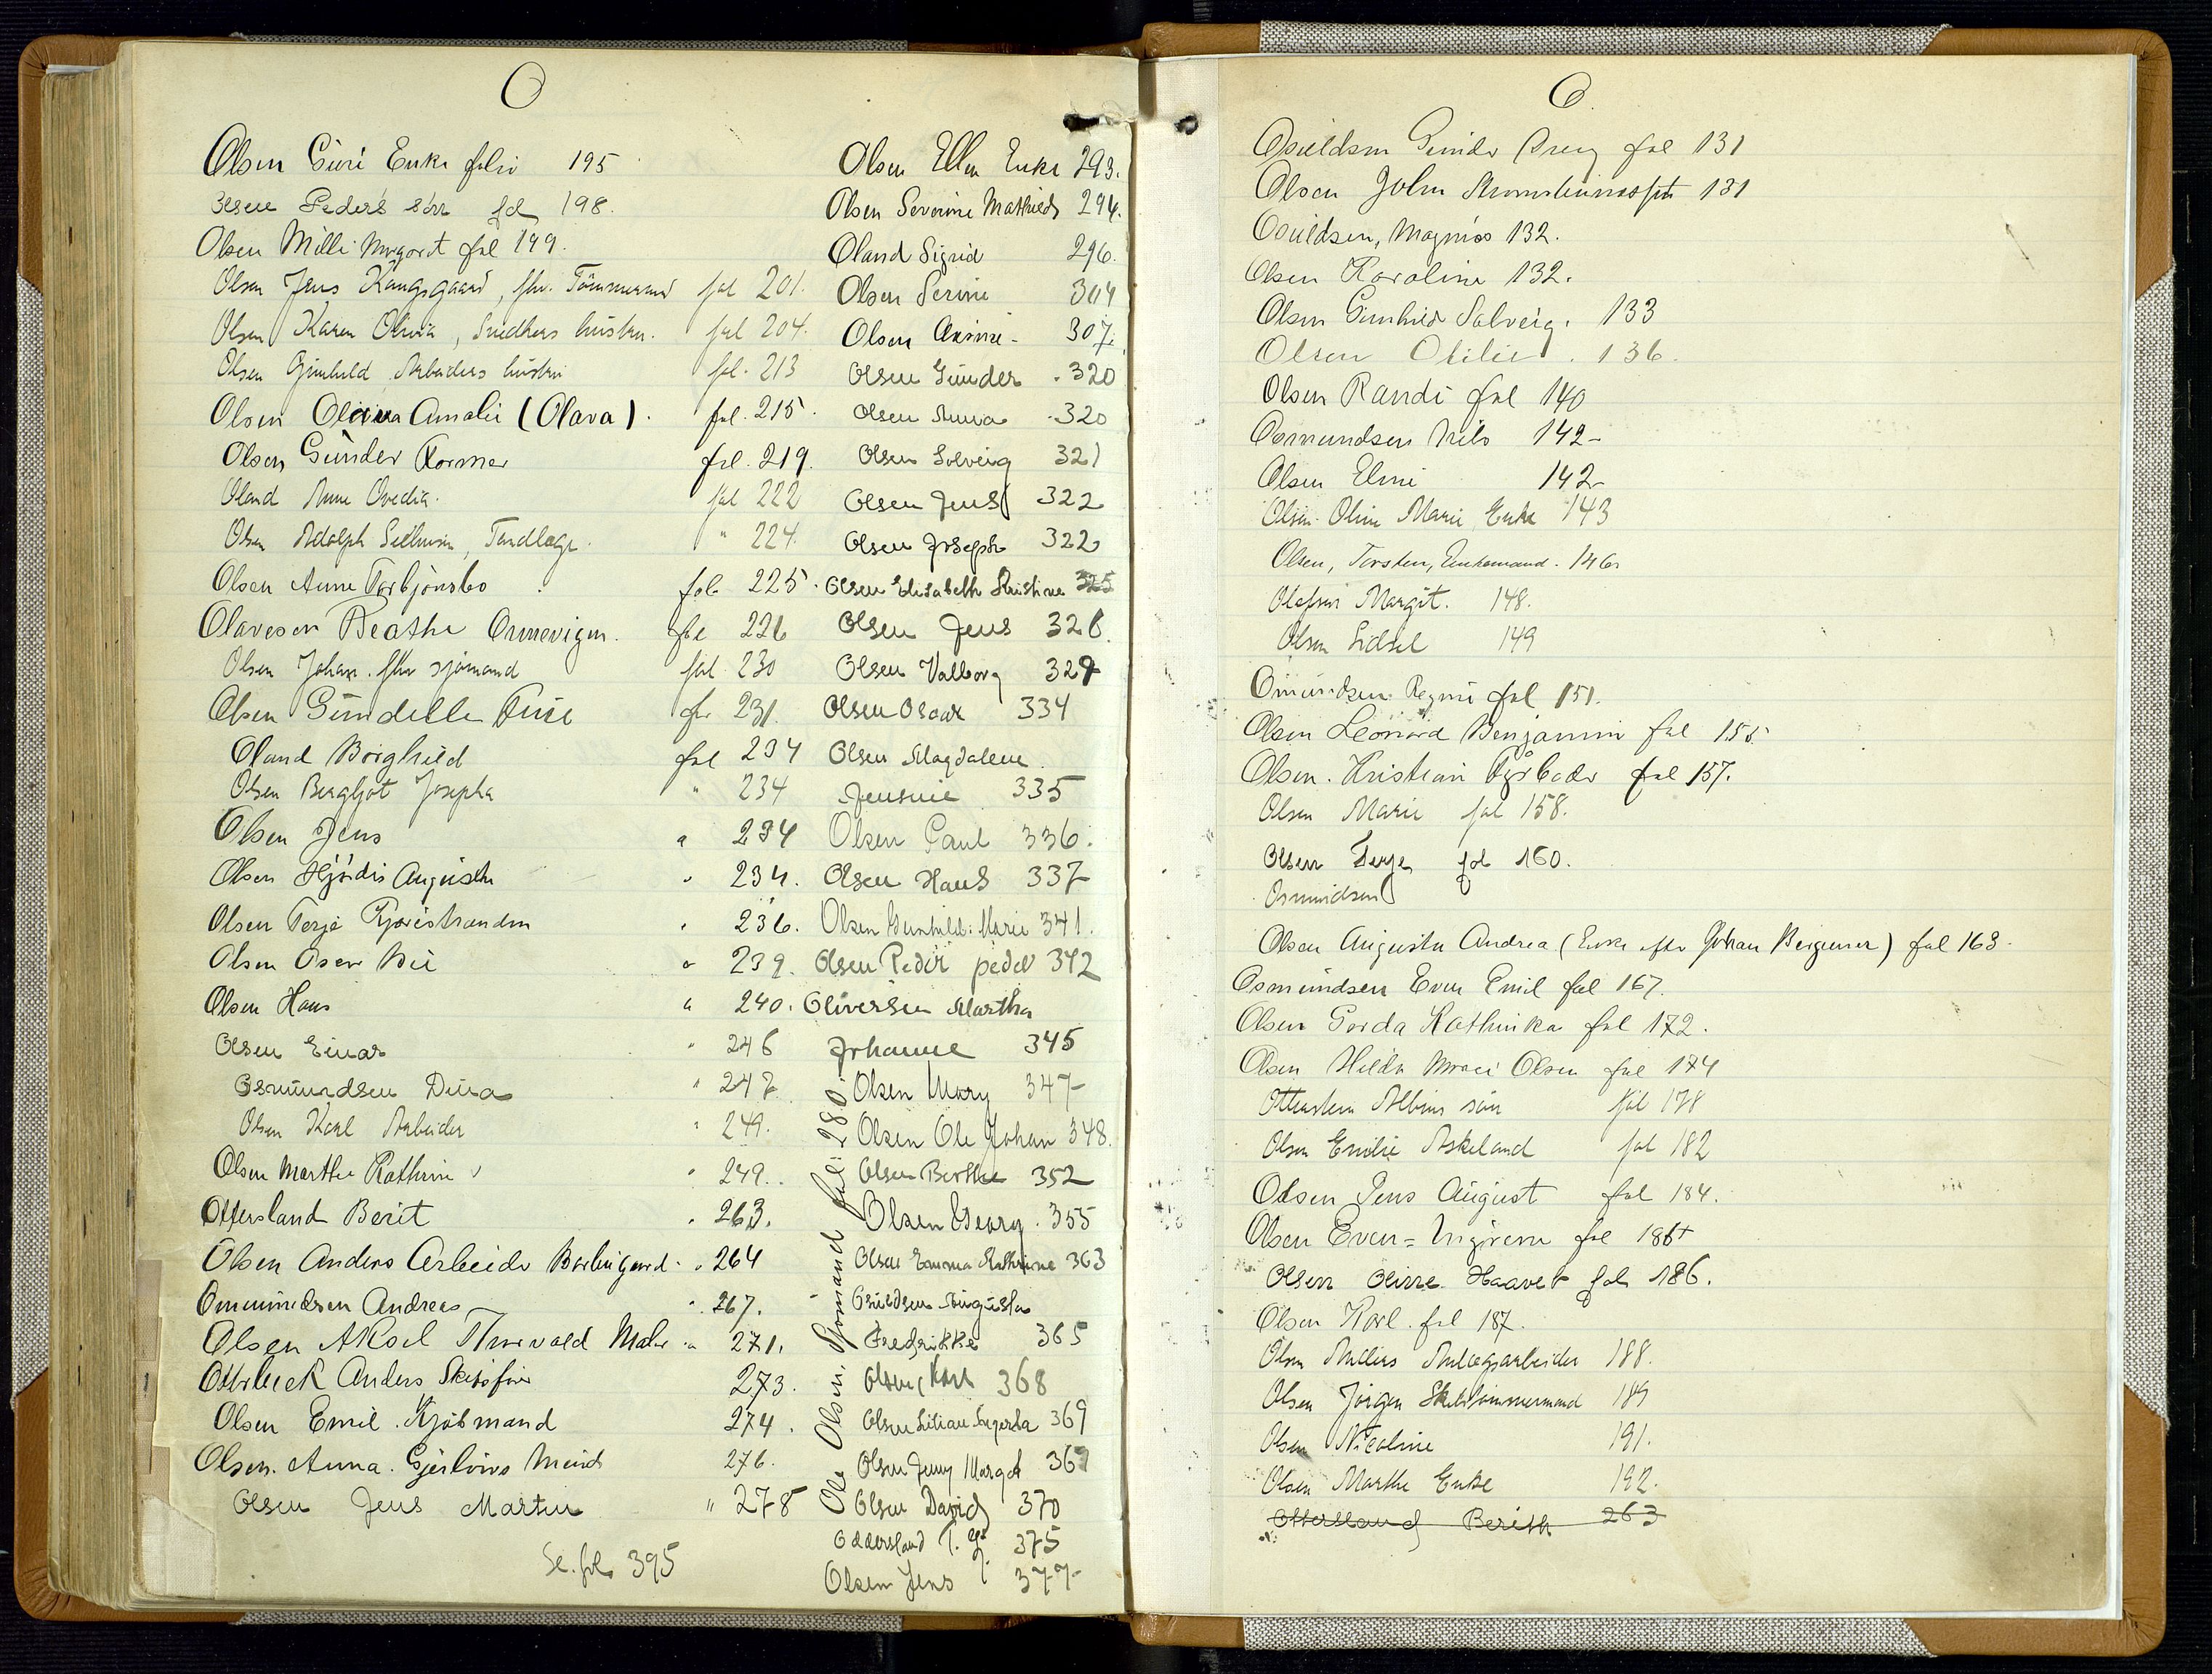 O
Olsen Guri Enke folio 195
Olsen Peders søn fol 198.
Olsen Milli Margort fol 199.
Olsen Jens Kongsgaard, fhv. Tømmermand fol 201.
Olsen Karen Olivia, Snedkers hustru. fol 204.
Olsen Gunhild Arbeiders hustru fol. 213
Olsen Oliva Amalie (Olava). fol. 215.
Olsen Gunder Kormer fol. 219.
Oland Anne Ovedia. fol 222
Olsen Adolph Tandlæge " 224.
Olsen Anne Torbjønsbo fol 225.
Olavesen Beathe Omrevigen. fol 226
Olsen Johan. fhv sjømand fol 230
Olsen Gundelle Tine fol 231.
Oland Borghild fol 234
Olsen Bergljot Josepha " 234
Olsen Jens " 234
Olsen Hjørdis Augusta " 234.
Olsen Terje Kjoristranden " 236.
Olsen Osen Bie " 239.
Olsen Hans " 240.
Olsen Einar " 246
Osmundsen Dina " 247
Olsen Karl Arbeider " 249.
Olsen Marthe Kathrine " 249.
Ottersland Berit " 263.
Olsen Anders Arbeider Barbugaard. " 264
Ommundsen Andreas " 267.
Olsen Aksel Thorvald Maler " 271.
Otterbeck Anders Skibsfører 273.
Olsen Emil. Kjøbmand 274.
Olsen. Anna. Gjerløws Minde 276.
Olsen Jens Martin " 278
Se. fol. 395
Olsen Ellen Enke 293.
Olsen Severine Mathilde 294.
Oland Sigrid 296.
Olsen Serine 304
Olsen Axime - 307.
Olsen Gunder . 320
Olsen Anna . 320
Olsen Solveig 321
Olsen Jens 322
Olsen Joseph 322
Olsen Elisabeth Kristine 325
Olsen Jens 326.
Olsen Valborg 327
Olsen Oscar 334
Olsen Magdalene
Jensine 335
Olsen Paul 336.
Olsen Hans 337
Olsen Gunhild. Marie 341.
Olsen Peder pedel 342
Oliversen Martha
Johanne 345
Olsen Mary 347
Olsen Ole Johan 348.
Olsen Berthe 352
Olsen Georg. 355
Olsen Emma Kathrine 363
Osuldsen Augusta
Fredrikke 365
Olsen, Karl 368
Olsen Lilian Ingerta 369
Olsen Jenny Margot 369
Olsen David 370
Oddersland T. G. 375
Olsen Jens J. 377
Ole Olsen. Sjømand fol. 280.
O.
Osuldsen Gunder fol 131
Olsen John 131
Osuldsen, Magnus 132.
Olsen Karoline 132.
Olsen Gunhild Solveig. 133
Olsen Otilie . 136.
Olsen Randi fol 140
Osmundsen Nils 142-
Olsen Eline 142-
Olsen Oline Marie Enke 143
Olsen, Torsten, Enkemand. 146
Olefsen Margit. 148.
Olsen Sidsel 149
Omundsen Regine fol 151.
Olsen Leonard Benjamin fol 155.
Olsen. Kristian Fyrbøder fol 157.
Olsen Marie fol 158.
Olsen Terje fol 160.
Osmundsen
Olsen Augusta Andrea (Enke efter Johan Bergener) fol 163.
Osmundsen Even Emil fol 167.
Olsen Gorda Kathinka fol 172.
Olsen Hilda Marie Olsen fol 174
Ottersten Albins søn fol 178
Olsen Emilie Askeland fol 182
Olsen Jens August fol 184.
Olsen Even = Ingeven fol 186+
Olsen Oline Haaver fol 186.
Olsen Karl. fol 187.
Olsen Anders Anlægsarbeider 188.
Olsen Jørgen Skibstømmermand 189
Olsen Nicoline 191.
Olsen Marthe Enke 192.
Ottersland Berith 263